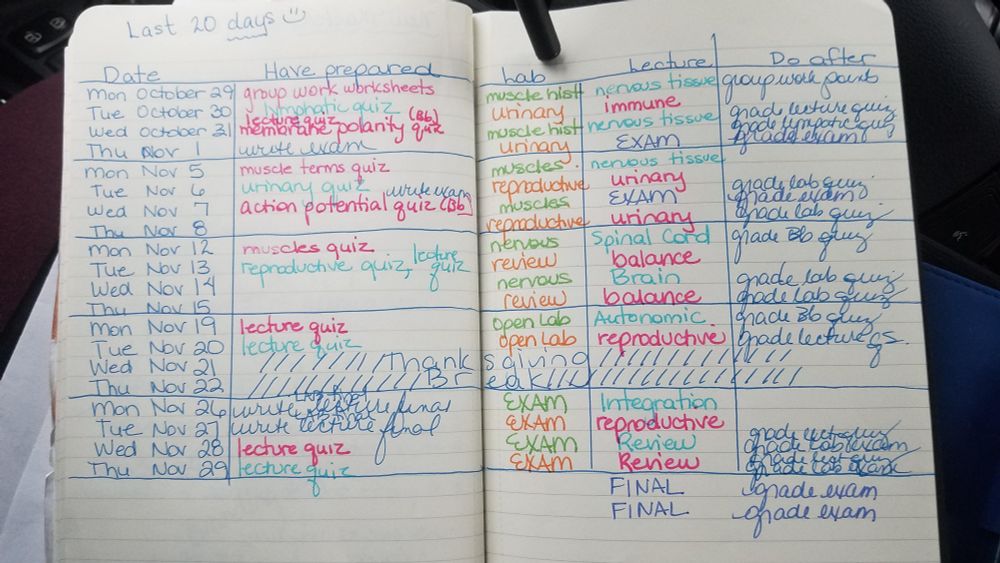 Last 20 days
Date Have prepared Lab Lecture Do after
Mon October 29 group work worksheets muscle hist nervous tissue group work points
Tue October 30 lymphatic quiz urinary immune grade lecture quiz
lecture quiz (Bb) grade lympatic quiz
Wed October 31 membrane polarity quiz muscle hist nervous tissue grade exam
Thu Nov 1 write exam urinary EXAM
Mon Nov 5 muscle terms quiz muscles nervous tissue
Tue Nov 6 urinary quiz write exam reproductive urinary grade lab quiz
Wed Nov 7 action potential quiz (Bb) muscles EXAM grade exam
Thu Nov 8 reproductive urinary grade lab quiz
Mon Nov 12 muscles quiz nervous Spinal Cord grade Bb quiz
Tue Nov 13 reproductive quiz, lecture quiz review balance
Wed Nov 14 nervous Brain grade lab quiz
Thu Nov 15 review balance grade lab quiz
Mon Nov 19 lecture quiz open Lab Autonomic grade Bb quiz
Tue Nov 20 lecture quiz open Lab reproductive grade lecture qs.
Wed Nov 21 Thanksgiving
Thu Nov 22 Break
Mon Nov 26 write lecture final EXAM Integration
Tue Nov 27 write lecture final EXAM reproductive grade lect quiz
Wed Nov 28 lecture quiz EXAM Review grade Lab exam
grade lect quiz
Thu Nov 29 lecture quiz EXAM Review grade lab exam
FINAL grade exam
FINAL grade exam